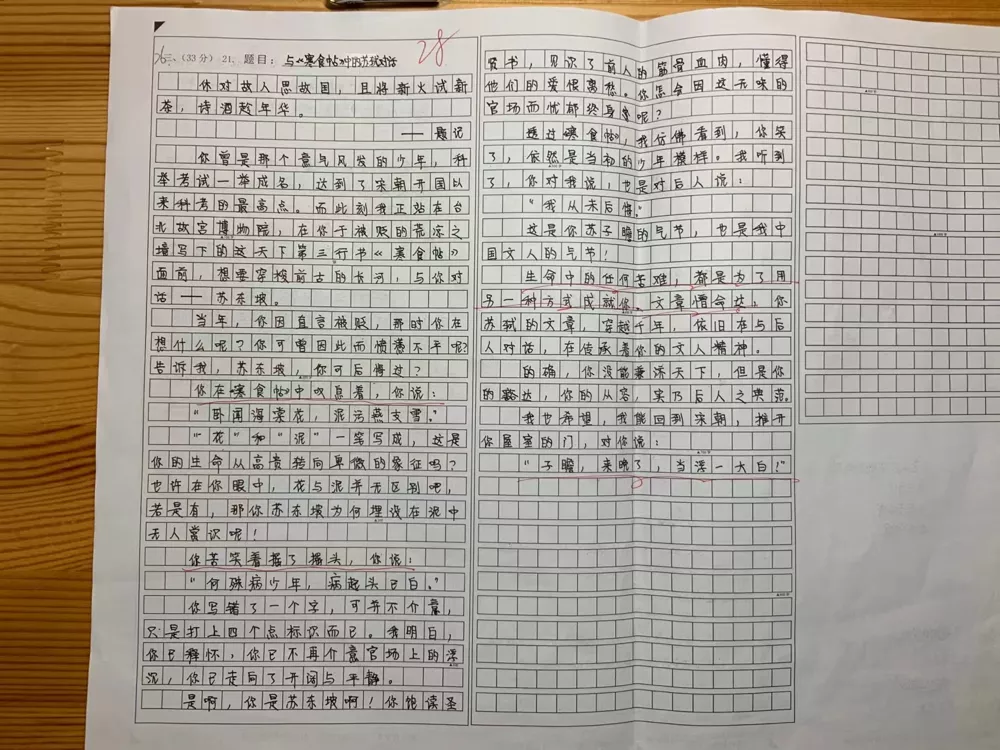 28
三、(33分) 21、题目：与《寒食帖》中的苏轼对话
休对故人思故国，且将新火试新
茶，诗酒趁年华。
——题记
你曾是那个意气风发的少年，科
举考试一举成名，达到了宋朝开国以
来科考的最高点。而此刻我正站在台
北故宫博物院，在你于被贬的荒凉之
境写下的这天下第三行书《寒食帖》
面前，想要穿梭前古的长河，与你对
话——苏东坡。
当年，你因直言被贬，那时你在
想什么呢？你可曾因此而愤懑不平呢？
告诉我，苏东坡，你可后悔过？
你在《寒食帖》中叹息着，你说：
“卧闻海棠花，泥污燕支雪。”
“花”和“泥”一笔写成，这是
你的生命从高贵转向卑微的象征吗？
也许在你眼中，花与泥并无区别吧，
若是有，那你苏东坡为何埋没在泥中
无人赏识呢！
你苦笑着摇了摇头，你说：
“何殊病少年，病起头已白。”
你写错了一个字，可并不介意，
只是打上四个点标识而已。我明白，
你已释怀，你已不再介意官场上的浮
沉，你已走向了开阔与平静。
是啊，你是苏东坡啊！你饱读圣
贤书，见识了前人的筋骨血肉，懂得
他们的爱恨离愁。你怎会因这无味的
官场而忧郁终身呢？
透过《寒食帖》，我仿佛看到，你笑
了，依然是当初的少年模样。我听到
了，你对我说，也是对后人说：
“我从未后悔。”
这是你苏子瞻的气节，也是我中
国文人的气节！
生命中的任何苦难，都是为了用
另一种方式成就你。文章憎命达，你
苏轼的文章，穿越千年，依旧在与后
人对话，在传承着你的文人精神。
的确，你没能兼济天下，但是你
的豁达，你的从容，实乃后人之典范。
我也希望，我能回到宋朝，推开
你屋室的门，对你说：
“子瞻，来晚了，当浮一大白！”